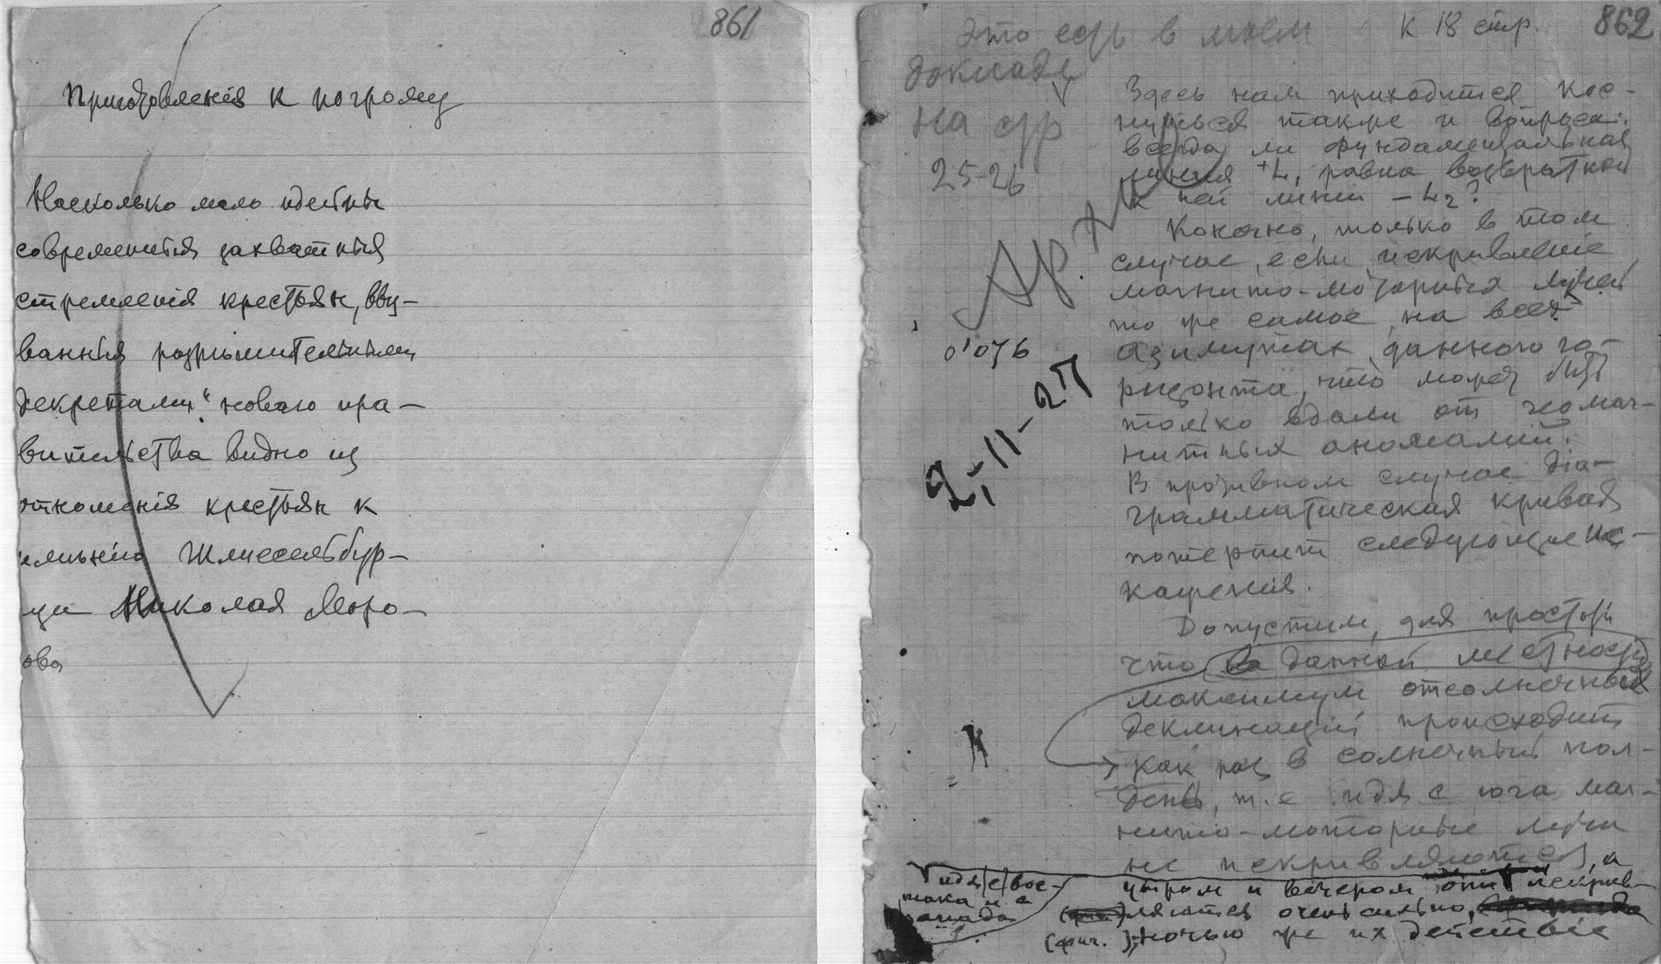 861
Приготовленія к погрому
Насколько мало идейны
современныя захватныя
стремленія крестьян, вы-
званныя разрушительными
декретами" новаго пра-
вительства видно из
отношенія крестьян к
имѣнію Шлиссельбур-
ца Николая Моро-
зова
862
К 18 стр.
Это есть в моем
докладе
на стр
25-26
Здесь нам приходится кос-
нуться также и вопроса:
всегда ли фундаментальная
линия +L, равна возвратной
к ней линии – L2?
Конечно, только в том
случае, если искривление
магнито-моторных лучей
то же самое на всех
азимутах данного го-
ризонта, что может быть
только вдали от геомаг-
нитных аномалий.
В противном случае диа-
грамматическая кривая
потерпит следующие ис-
кажения.
Допустим, для простоты
что в данной местности
максимум отсолнечной
деклинации происходит
как раз в солнечный пол-
день, т.е идя с юга маг-
нито-моторные лучи
не искривляются, а
утром и вечером они искрив-
ляются очень сильно,
(фиг. ); ночью же их действие
идя с вос-
тока и с
запада
0'076
2-11-27
К